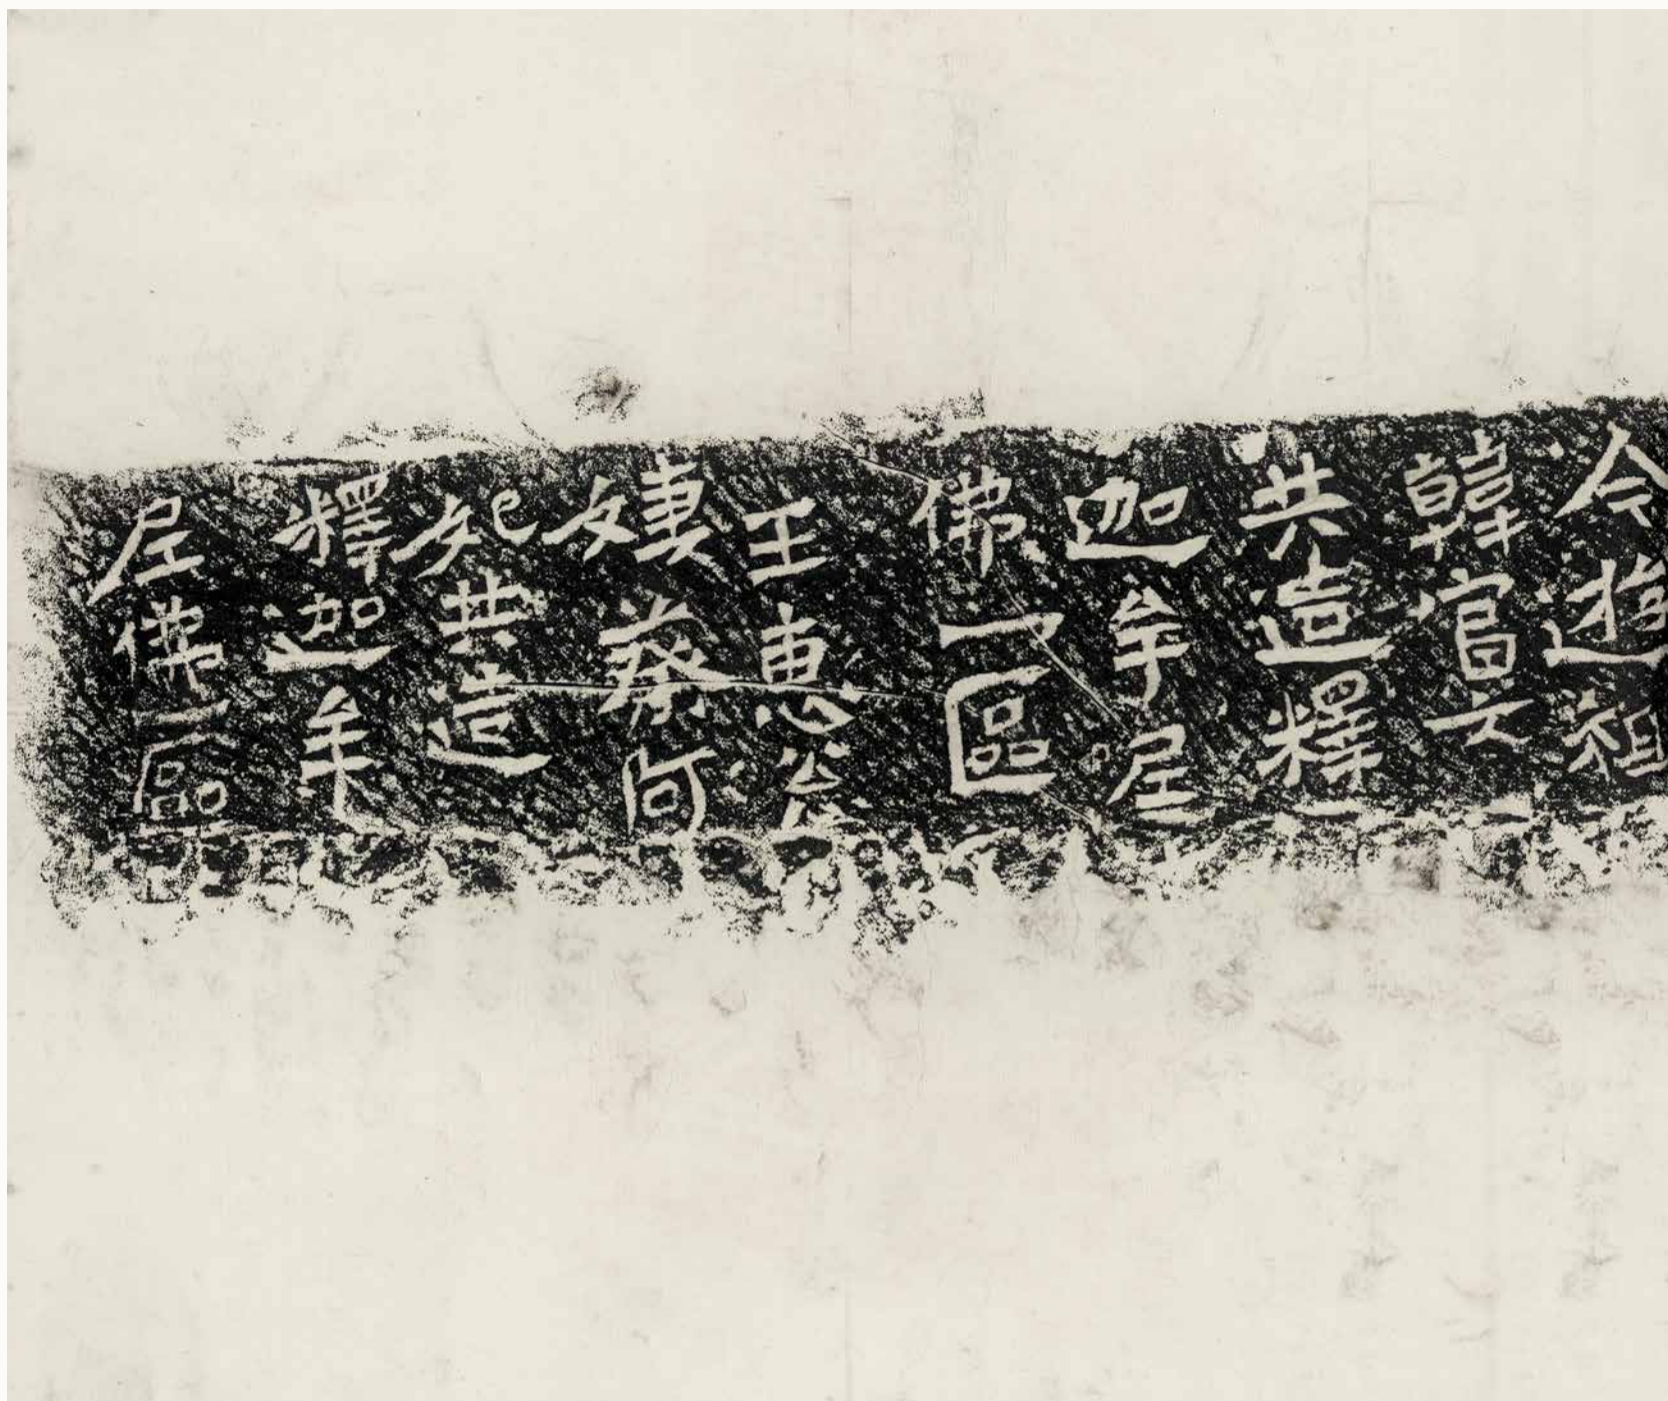 令遊祖
韓官文
共造釋
迦牟尼
佛一區
王惠
妻蔡何
妃共造
釋迦牟
尼佛一區